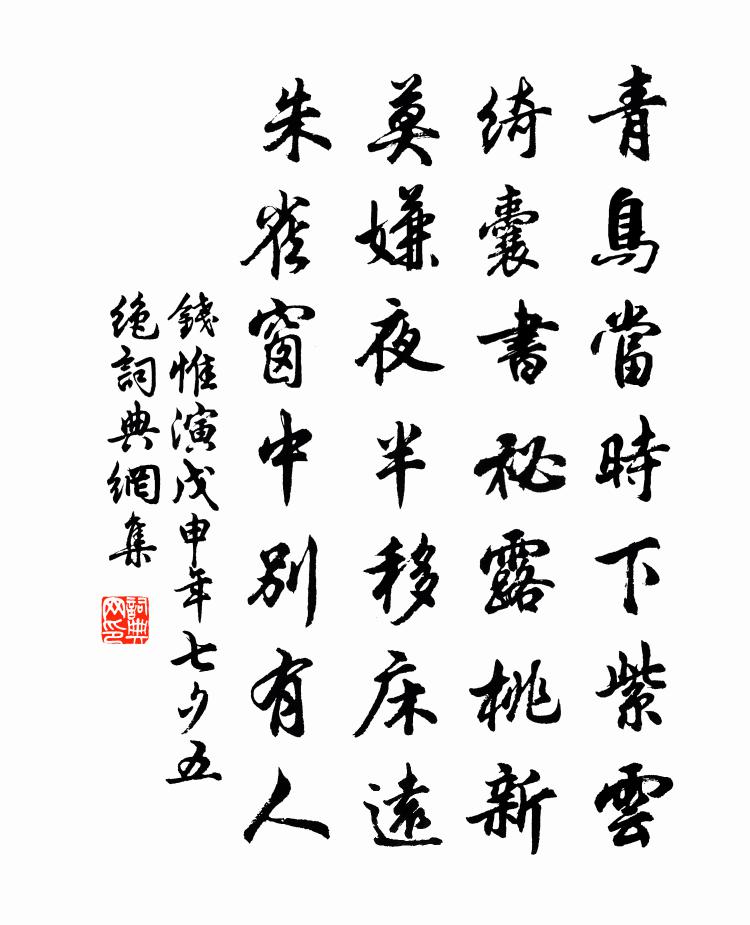 青鳥當時下紫雲
綺囊書秘露桃新
莫嫌夜半移床遠
朱雀窗中別有人
錢惟演戊申年七夕五
絶詞典網集
詞典
网印